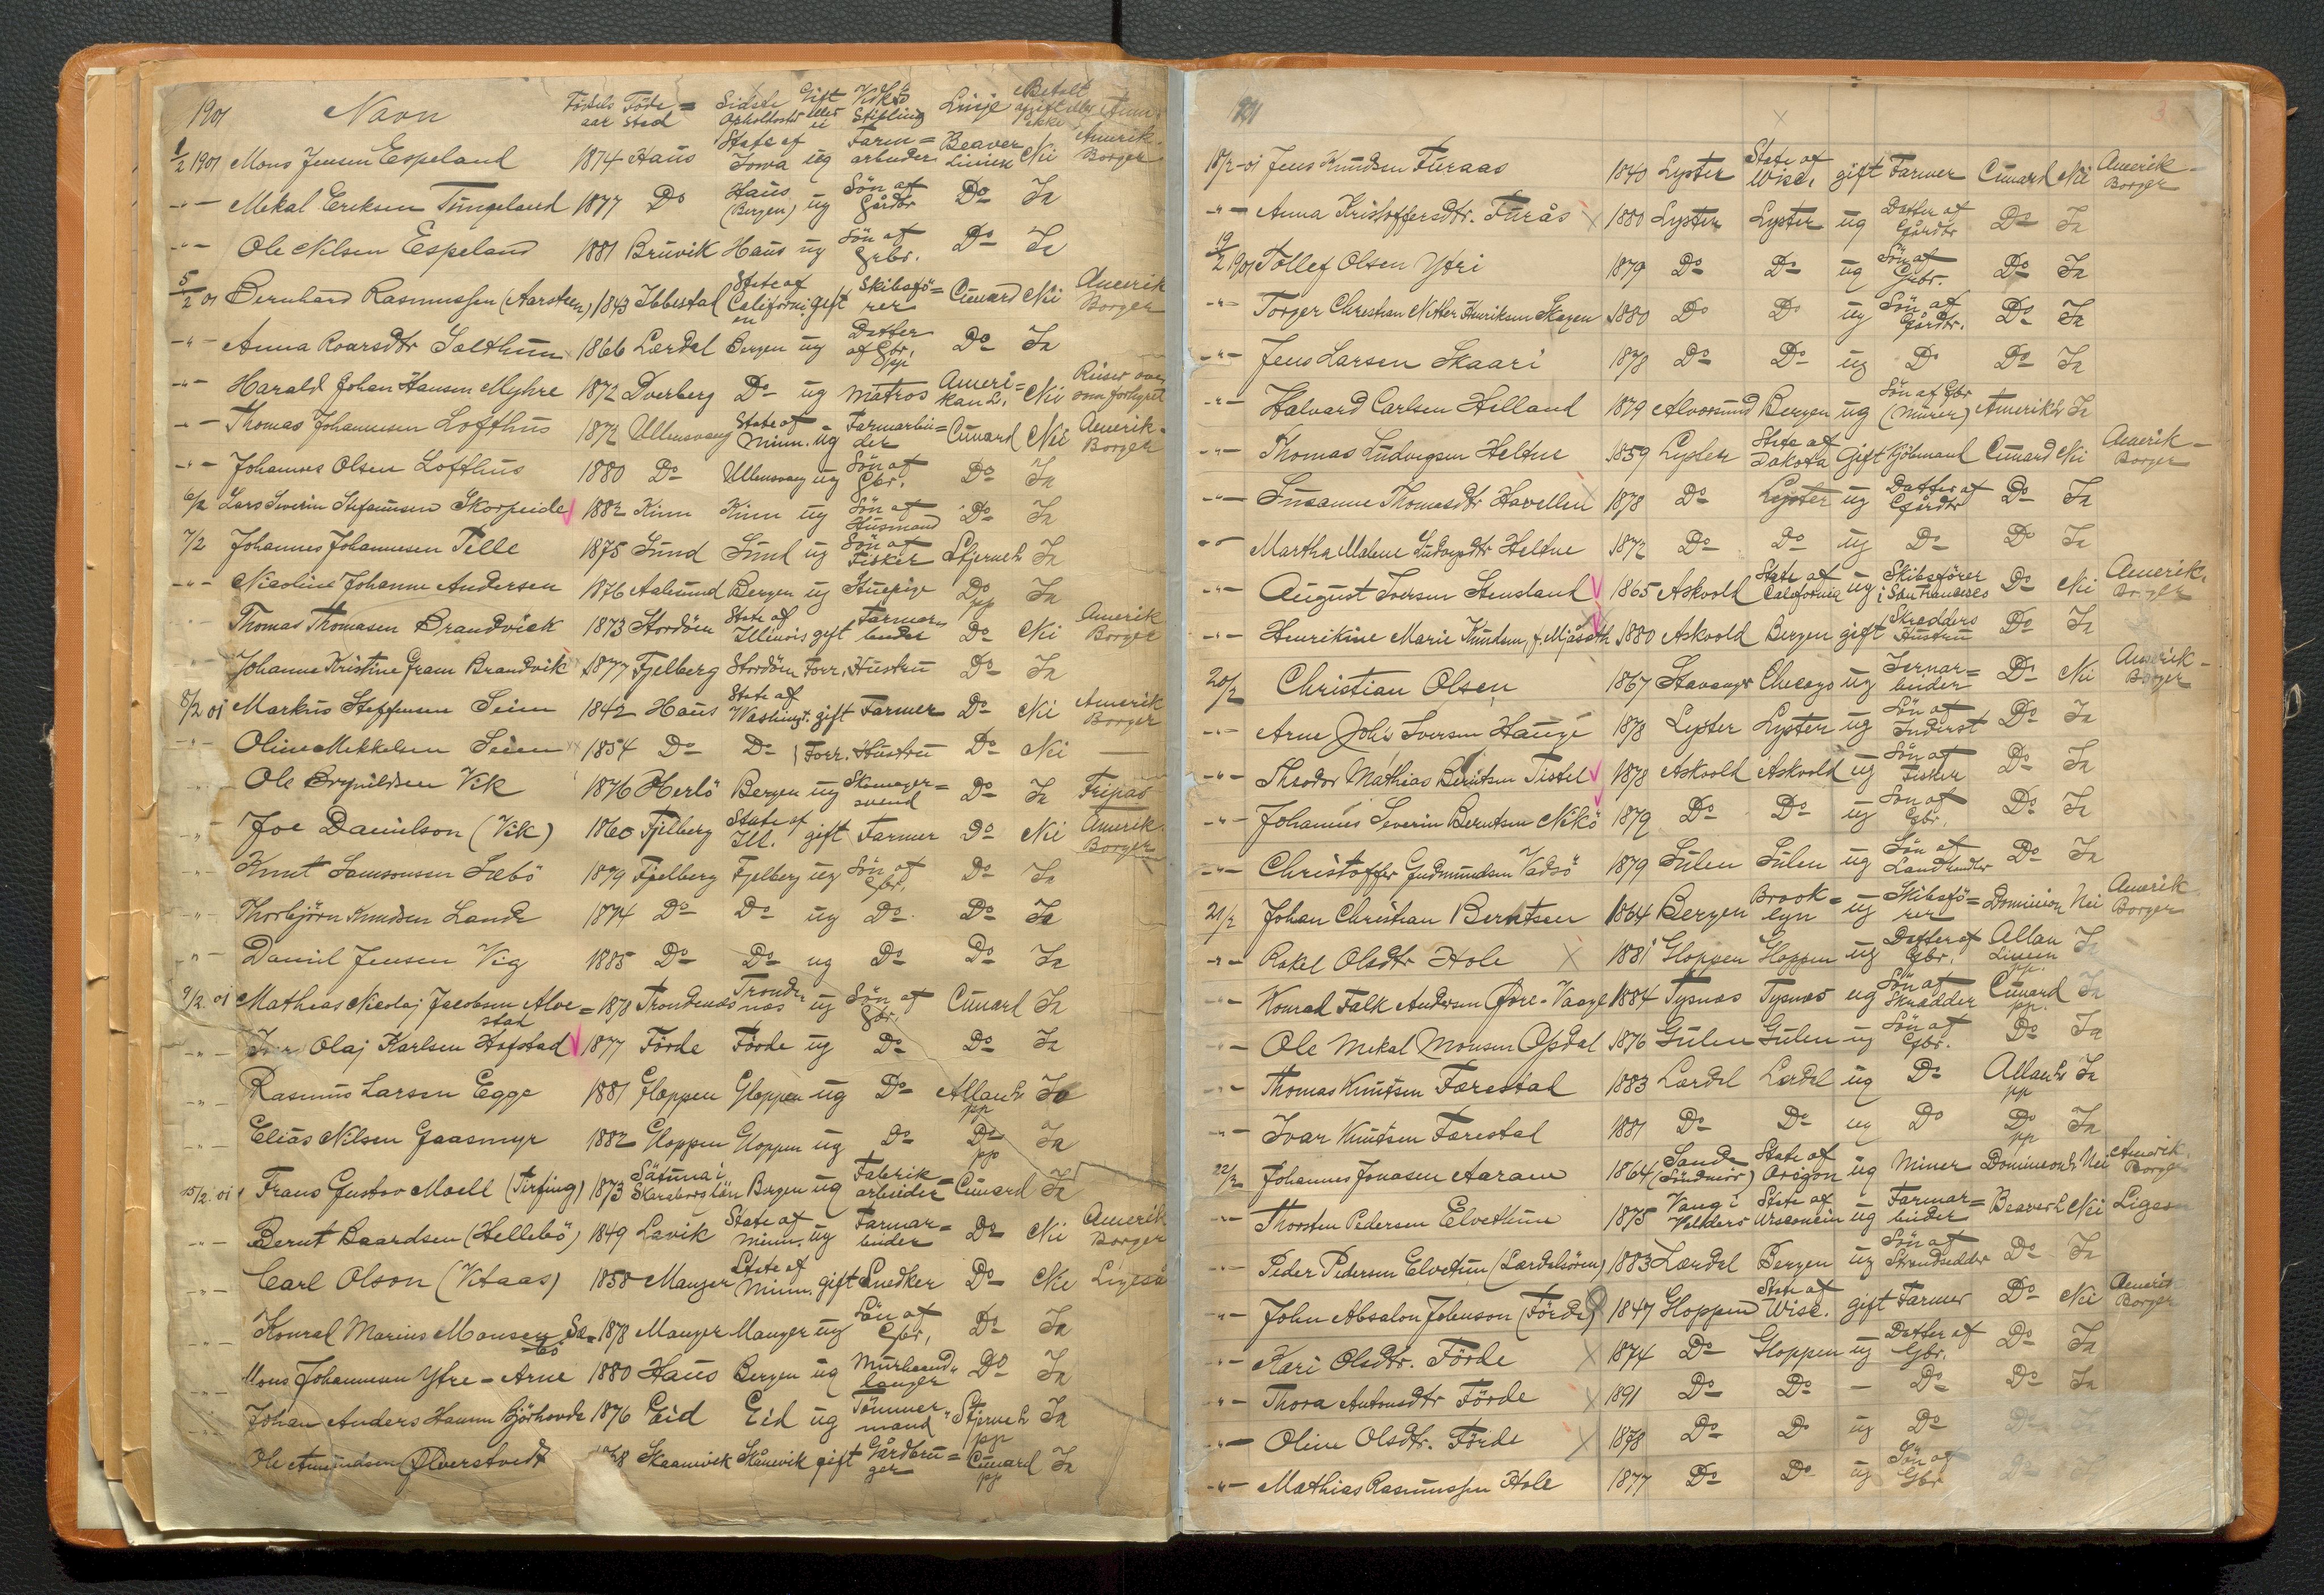 1901 Navn Fødsels aar Føde= sted Sidste Opholdssted Gift eller ei Livs Stilling Linje Betalt afgift eller ikke Anm.
1/2 1901 Mons Jensen Espeland 1874 Haus State of Iowa ug Farm= arbeider Beaver Linien Nei Amerik. Borger
-"- Mekal Eriksen Tungeland 1877 Do Haus (Bergen) ug Søn af Gårdbr Do Ja
-"- Ole Nilsen Espeland 1881 Bruvik Haus ug Søn af Grbr. Do Ja
5/2 01 Bernhard Rasmussen (Aarsteen) 1843 Ibbestad State of Californien gift Skibsfø= rer Cunard Nei Amerik Borger
-"- Anna Roarsdtr Solthun 1866 Lærdal Bergen ug Datter af Gbr. pp Do Ja
-"- Harald Johan Hansen Myhre 1872 Dverberg Do ug Matros Ameri= kan L. Nei Reiser over som forhyret
-"- Thomas Johannesen Lofthus 1872 Ullensvang State of Minn. ug Farmarbei= der Cunard Nei Amerik. Borger
-"- Johannes Olsen Lofthus 1880 Do Ullensvang ug Søn af Gbr. Do Ja
6/2 Lars Severin Stefanusen Skorpeide 1882 Kinn Kinn ug Søn af Husmand Do Ja
7/2 Johannes Johannesen Telle 1875 Sund Sund ug Søn af Fisker Stjerne L Ja
-"- Nicoline Johanne Andersen 1876 Aalesund Bergen ug Stuepige Do pp Ja
Thomas Thomasen Brandvick 1873 Stordöen State of Illinois gift Farmar= beider Do Nei Amerik Borger
Johanne Kristine Gram Brandvik 1877 Fjelberg Stordöen Forr. Hustru Do Ja
8/2 01 Markus Steffensen Seim 1842 Haus State of Washingt. gift Farmer Do Nei Amerik Borger
-"- Oline Mikkelsen Seim 1854 Do Do Forr. Hustru Do Nei —
Ole Brynildsen Vik 1876 Herlö Bergen ug Skomager= svend Do Ja Fripas
-"- Joe Danielson (Vik) 1860 Fjelberg State of Ill. gift Farmer Do Nei Amerik. Borger
-"- Knut Samsonsen Sæbö 1879 Fjelberg Fjelberg ug Søn af Gbr. Do Ja
-"- Thorbjörn Knudsen Lande 1874 Do Do ug Do Do Ja
-"- Daniel Jensen Vig 1885 Do Do ug Do Do Ja
9/2 01 Mathias Nicolaj Jacobsen Alve= stad 1878 Trondenæs Tronde næs ug Søn af Gbr. Cunard Ja
-"- Olaj Karlsen Hafstad 1877 Förde Förde ug Do Do Ja
-"- Rasmus Larsen Egge 1881 Gloppen Gloppen ug Do Allan L pp Ja
-"- Elias Nilsen Gaasmyr 1882 Gloppen Gloppen ug Do Do pp Ja
15/2 01 Frans Gustav Moell (Tirfing) 1873 Sätuna i Skaraborgs län Bergen ug Fabrik= arbeider Cunard Ja
-"- Bernt Baardsen (Hellebö) 1849 Lavik State of Minn. ug Farmar= beider Do Nei Amerik Borger
-"- Carl Olson (Vitaas) 1858 Manger State of Minn. gift Snedker Do Nei Ligesaa
-"- Konrad Marius Monsen Sæ= bö 1878 Manger Manger ug Søn af Gbr. Do Ja
-"- Mons Johannesen Ytre-Arne 1880 Haus Bergen ug Murhaand= langer Do Ja
-"- Johan Anders Hansen Hjörhovde 1876 Eid Eid ug Tömmer mand Stjerne L pp Ja
Ole Amundsen Ølverstvedt 1868 Skaanevik Skånevik gift Gårdbru= ger Cunard pp Ja
1901
18/2-01 Jens Knudsen Furaas 1840 Lyster State of Wisc. gift Farmer Cunard Nei Amerik- Borger
-"- Anna Kristoffersdtr. Furås 1880 Lyster Lyster ug Datter af Gårdbr Do Ja
19/2 1901 Tollef Olsen Ytri 1879 Do Do ug Søn af Gbr. Do Ja
-"- Torger Christian Nitter Henriksen Skagen 1880 Do Do ug Søn af Gårdbr. Do Ja
-"- Jens Larsen Skaari 1878 Do Do ug Do Do Ja
-"- Halvard Carlsen Helland 1879 Alversund Bergen ug Søn af Gbr (Murer) Amerik L Ja
-"- Thomas Ludvigsen Heltne 1859 Lyster State of Dakota Gift Kjöbmand Cunard Nei Amerik- Borger
-"- Susanne Thomasdtr Havellen 1878 Do Lyster ug Datter af Gårdbr Do Ja
-"- Martha Malene Ludvigsdtr Heltne 1872 Do Do ug Do Do Ja
-"- August Iversen Stensland 1865 Askvold State of California ug Skibsförer i San Francisco Do Nei Amerik. Borger
-"- Henrikine Marie Knudsen, f. Mjåseth 1880 Askvold Bergen gift Skrædders Hustru Do Ja
20/2 Christian Olsen 1867 Stavanger Chicago ug Jernar= beider Do Nei Amerik- Borger
-"- Arne Johs Iversen Hauge 1878 Lyster Lyster ug Søn af Inderst Do Ja
-"- Theodor Mathias Berntsen Tistel 1878 Askvold Askvold ug Søn af Fisker Do Ja
-"- Johannes Severin Berntsen Nikö 1879 Do Do ug Søn af Gbr. Do Ja
-"- Christoffer Gudmundsen Vadsö 1879 Sulen Sulen ug Søn af Landhandler Do Ja
21/2 Johan Christian Berntsen 1864 Bergen Brook= lyn ug Skibsfö= rer Dominion Nei Amerik. Borger
-"- Rakel Olsdtr Hole 1881 Gloppen Gloppen ug Datter af Gbr. Allan Linien pp. Ja
-"- Konrad Falk Andersen Øvre-Vaage 1884 Tysnæs Tysnæs ug Søn af Skrædder Cunard pp. Ja
-"- Ole Mekal Monsen Opdal 1876 Gulen Gulen ug Søn af Gbr. Do Ja
-"- Thomas Knutsen Færestad 1883 Lærdal Lærdal ug Do Allan L pp Ja
-"- Ivar Knutsen Færestad 1881 Do Do ug Do Do pp Ja
22/2 Johannes Jonasen Aaram 1864 Sande (Söndmör) State of Oregon ug Miner Dominion L Nei Amerik. Borger
-"- Thorsten Pedersen Elvethun 1875 Vang i Valders State of Wisconsin ug Farmar= beider Beaver L Nei Ligesaa
-"- Peder Pedersen Elvethun (Lærdalsören) 1883 Lærdal Bergen ug Søn af Strandsidder Do Ja
-"- John Absalon Johnson (Förde) 1847 Gloppen State of Wisc. gift Farmer Do Nei Amerik. Borger
-"- Kari Olsdtr. Förde 1874 Do Gloppen ug Datter af Gbr. Do Ja
-"- Thora Antonsdtr Förde 1891 Do Do — Do Do Ja
-"- Oline Olsdtr. Förde 1878 Do Do ug Do Do
-"- Mathias Rasmussen Hole 1877 Do Do ug Søn af Gbr Do